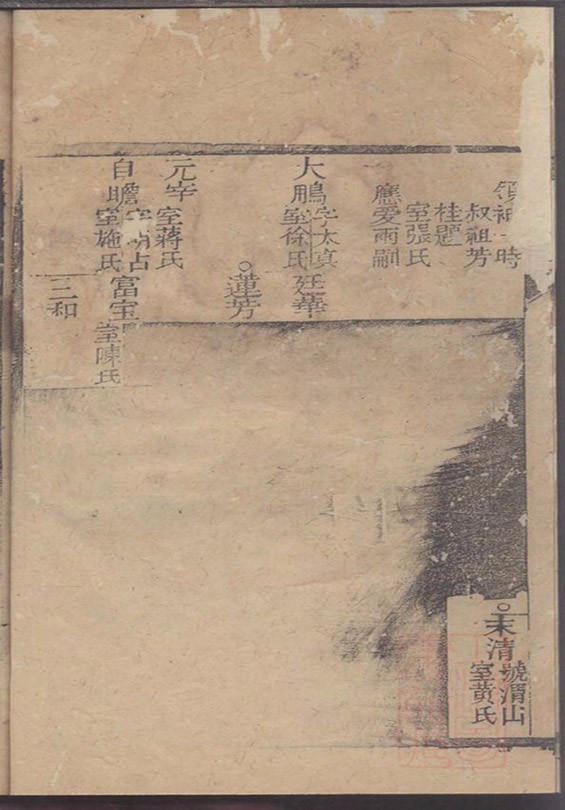 領袖一時
叔祖芳
桂題
室張氏
應爱兩嗣
大鵬字太真
室徐氏
廷華
○蓮芳
元宰室蔣氏
自瞻字
占
室施氏
富宝室陳氏
三和
○末清號渭山
室黄氏